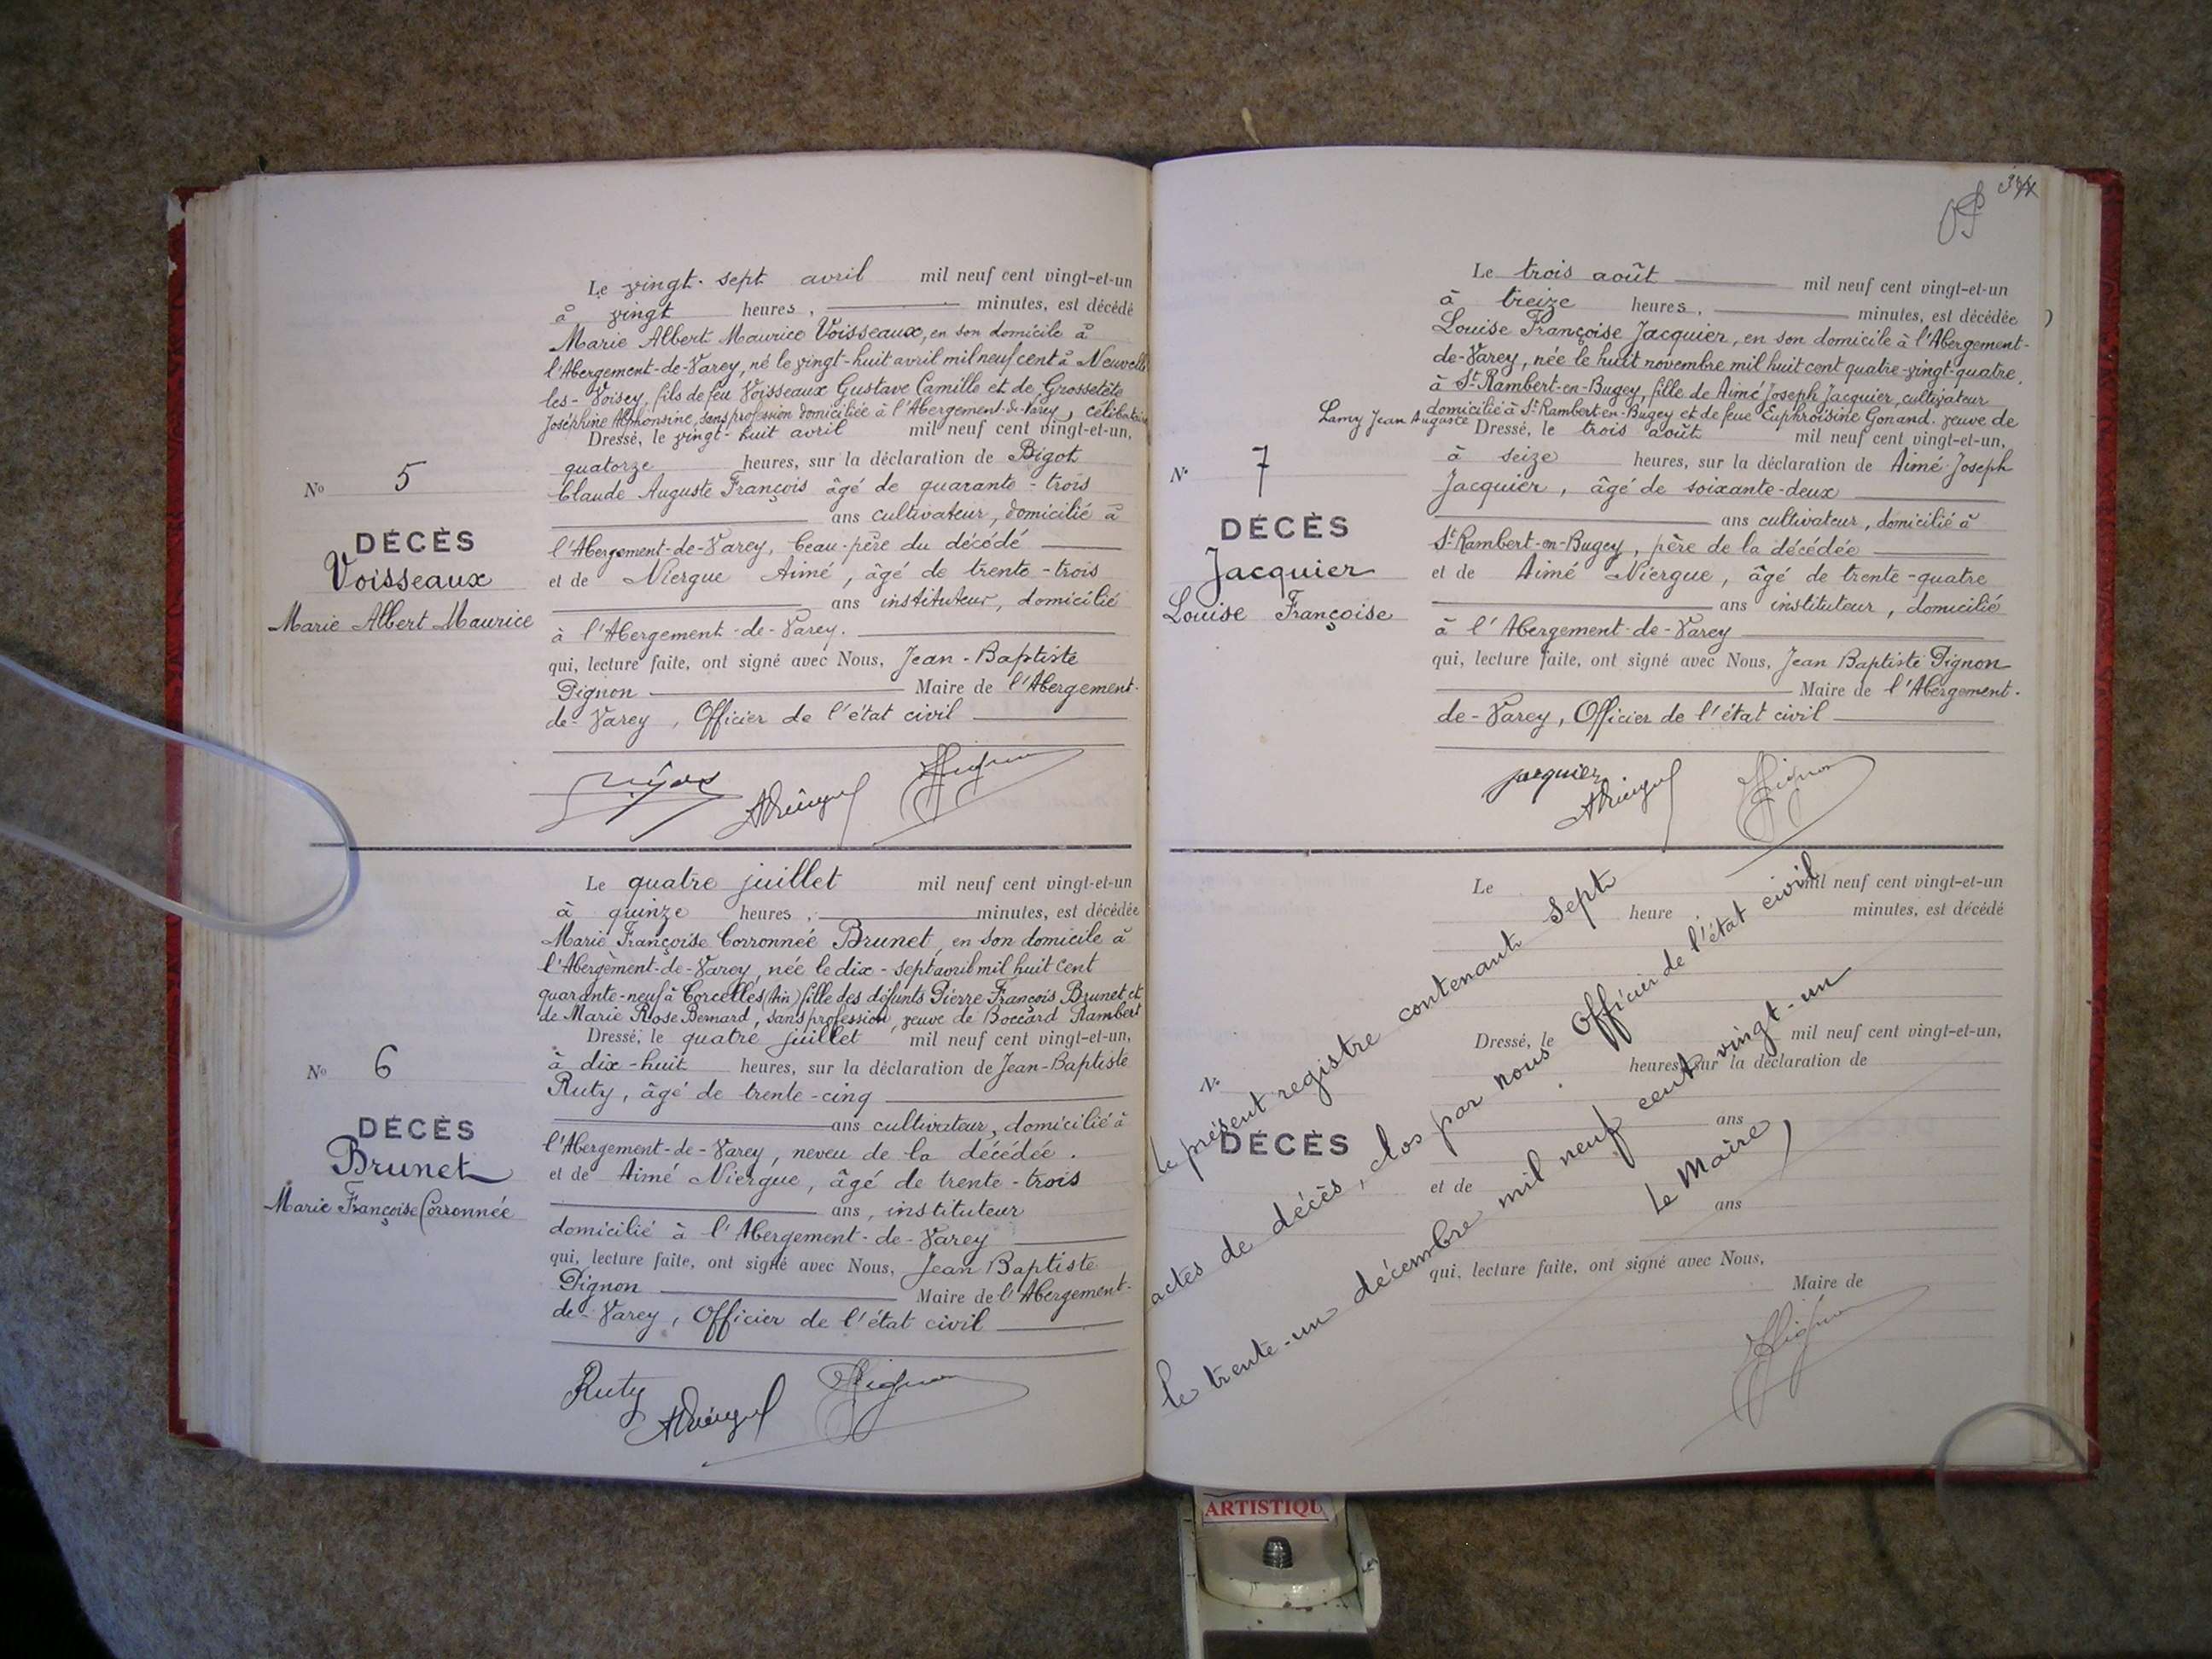 Le vingt-sept avril mil neuf cent vingt-et-un
à vingt heures, minutes, est décédé
Marie Albert Maurice Voisseaux, en son domicile à
l'Abergement-de-Varey, né le vingt-huit avril mil neuf cent à Neuvelle
les-Voisey, fils de feu Voisseaux Gustave Camille et de Grossetête
Joséphine Alphonsine, sans profession domiciliée à l'Abergement-de-Varey, célibataire
Dressé, le vingt-huit avril mil neuf cent vingt-et-un,
quatorze heures, sur la déclaration de Bigot
Claude Auguste François âgé de quarante-trois
ans cultivateur, domicilié à
l'Abergement-de-Varey, beau-père du décédé
et de Niergue Aimé, âgé de trente-trois
ans instituteur, domicilié
à l'Abergement-de-Varey.
qui, lecture faite, ont signé avec Nous, Jean-Baptiste
Pignon Maire de l'Abergement-
de-Varey, Officier de l'état civil
No 5
DÉCÈS
Voisseaux
Marie Albert Maurice
Le quatre juillet mil neuf cent vingt-et-un
à quinze heures, minutes, est décédée
Marie Françoise Corronnée Brunet, en son domicile à
l'Abergement-de-Varey, née le dix-sept avril mil huit cent
quarante-neuf à Corcelles (Ain) fille des défunts Pierre François Brunet et
de Marie Rose Bernard, sans profession, veuve de Boccard Rambert
Dressé, le quatre juillet mil neuf cent vingt-et-un,
à dix-huit heures, sur la déclaration de Jean-Baptiste
Ruty, âgé de trente-cinq
ans cultivateur, domicilié à
l'Abergement-de-Varey, neveu de la décédée.
et de Aimé Niergue, âgé de trente-trois
ans, instituteur
domicilié à l'Abergement-de-Varey
qui, lecture faite, ont signé avec Nous, Jean Baptiste
Pignon Maire de l'Abergement-
de-Varey, Officier de l'état civil
No 6
DÉCÈS
Brunet
Marie Françoise Corronnée
Ruty
Le trois août mil neuf cent vingt-et-un
à treize heures, minutes, est décédée
Louise Françoise Jacquier, en son domicile à l'Abergement-
de-Varey, née le huit novembre mil huit cent quatre-vingt-quatre,
à St-Rambert-en-Bugey, fille de Aimé Joseph Jacquier, cultivateur
domicilié à St-Rambert-en-Bugey et de feue Euphroisine Gonand. veuve de
Lamy Jean Auguste Dressé, le trois août mil neuf cent vingt-et-un,
à seize heures, sur la déclaration de Aimé Joseph
Jacquier, âgé de soixante-deux
ans cultivateur, domicilié à
St-Rambert-en-Bugey, père de la décédée
et de Aimé Niergue, âgé de trente-quatre
ans instituteur, domicilié
à l'Abergement-de-Varey
qui, lecture faite, ont signé avec Nous, Jean Baptiste Pignon
Maire de l'Abergement-
de-Varey, Officier de l'état civil
No 7
DÉCÈS
Jacquier
Louise Françoise
Jacquier
Le mil neuf cent vingt-et-un
heure minutes, est décédé
Dressé, le mil neuf cent vingt-et-un,
heures, sur la déclaration de
ans
et de
ans
qui, lecture faite, ont signé avec Nous,
Maire de
No
DÉCÈS
Le présent registre contenant sept
actes de décès, clos par nous Officier de l'état civil
le trente-un décembre mil neuf cent vingt-un
Le Maire,
ARTISTIQU